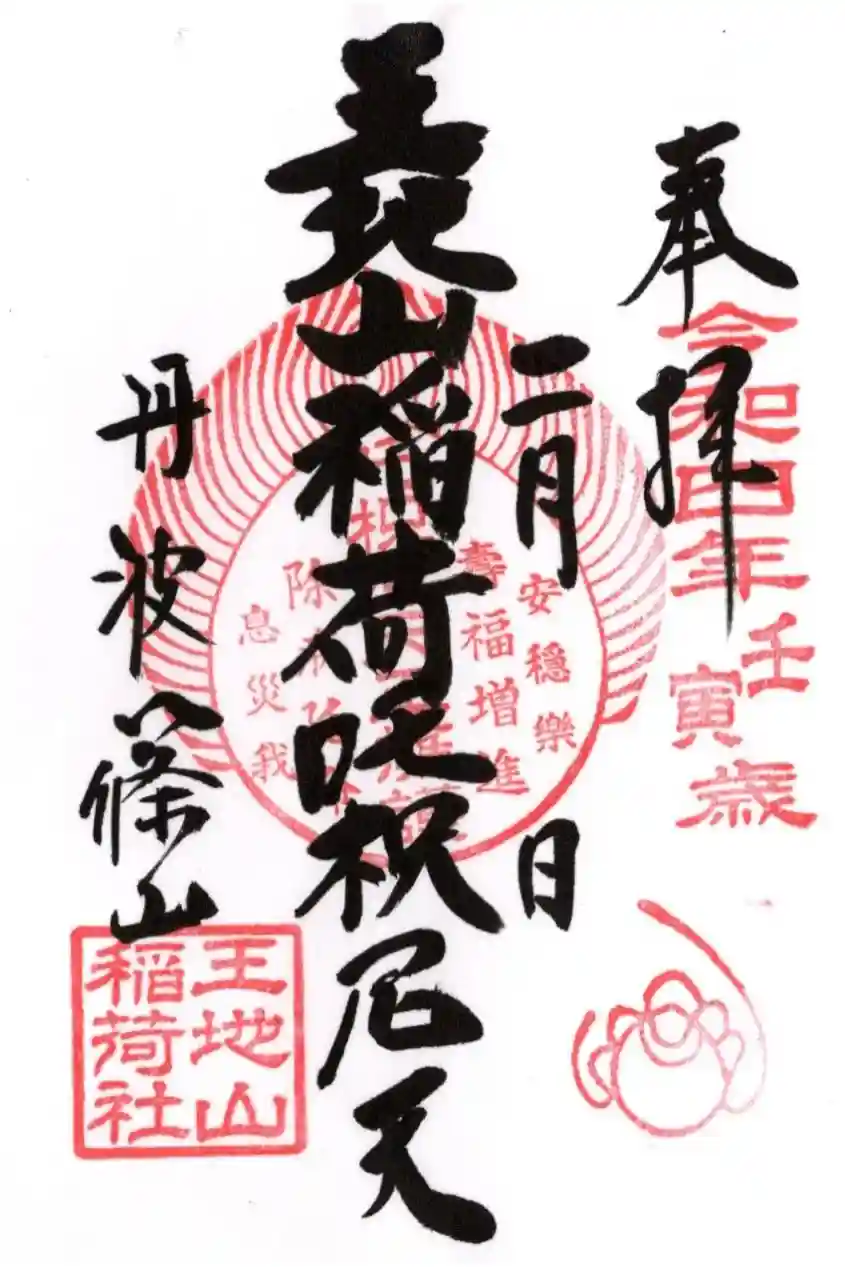 奉拝
令和四年
壬寅歳
二月 日
王地山稲荷吒枳尼天
丹波篠山
安穩樂
壽福増進
息災我
王地山
稲荷社